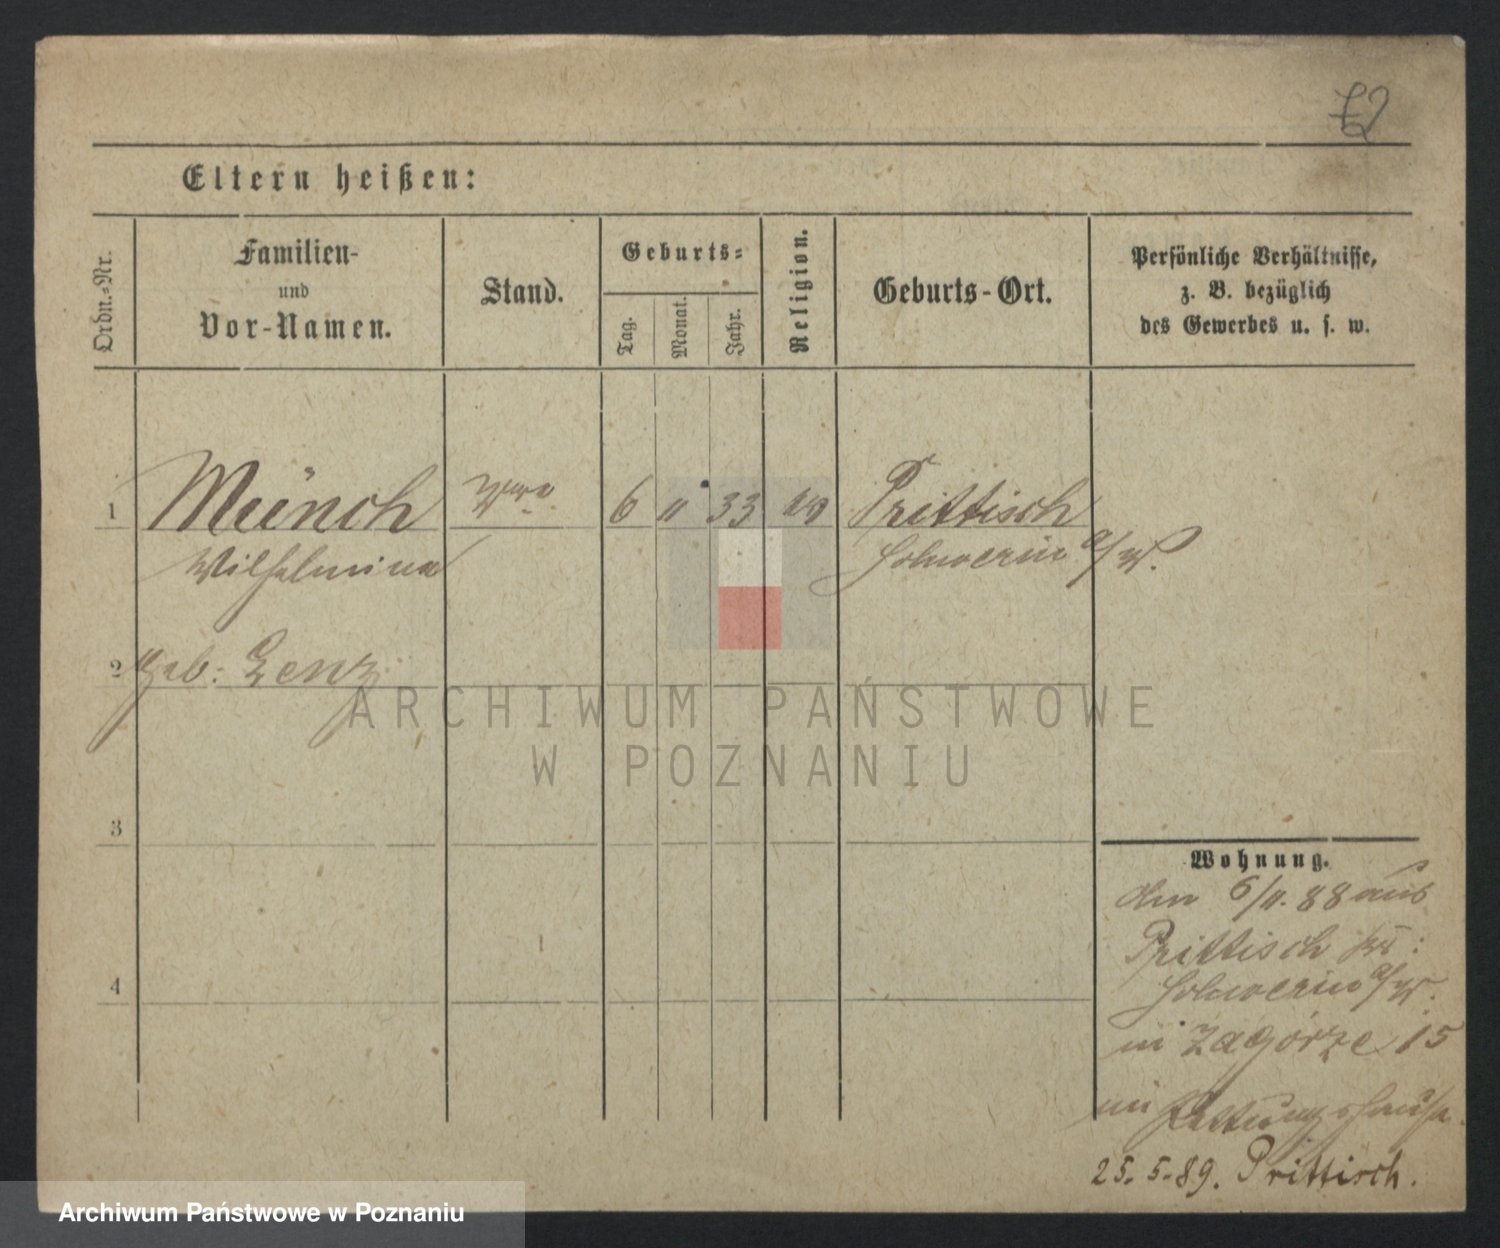 Eltern heißen:
Ordn.-Nr.
Familien-
und
Vor-Namen.
Stand.
Geburts-
Tag.
Monat.
Jahr.
Religion.
Geburts-Ort.
Persönliche Verhältnisse,
z. B. bezüglich
des Gewerbes u. s. w.
1
Münch
6
11
33
Prittisch
Wilhelmina
Schwerin a/W.
2
geb: Lenz
ARCHIWUM PAŃSTWOWE
W POZNANIU
3
4
Wohnung.
den 6/11. 88 aus
Prittisch
Schwerin a/W.
in Zagorze 15
im Rettungshause.
25. 5. 89. Prittisch.
Archiwum Państwowe w Poznaniu